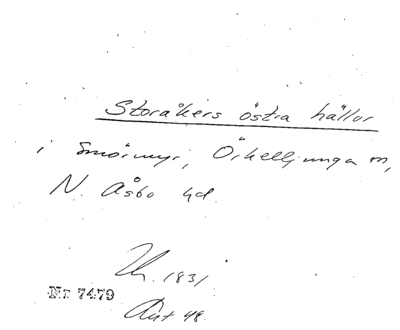 Storåkers östra hällor
i Smörmyr, Örkelljunga m,
N. Åsbo hd.
Uh. 1831
Nr 7479
Aut 48.